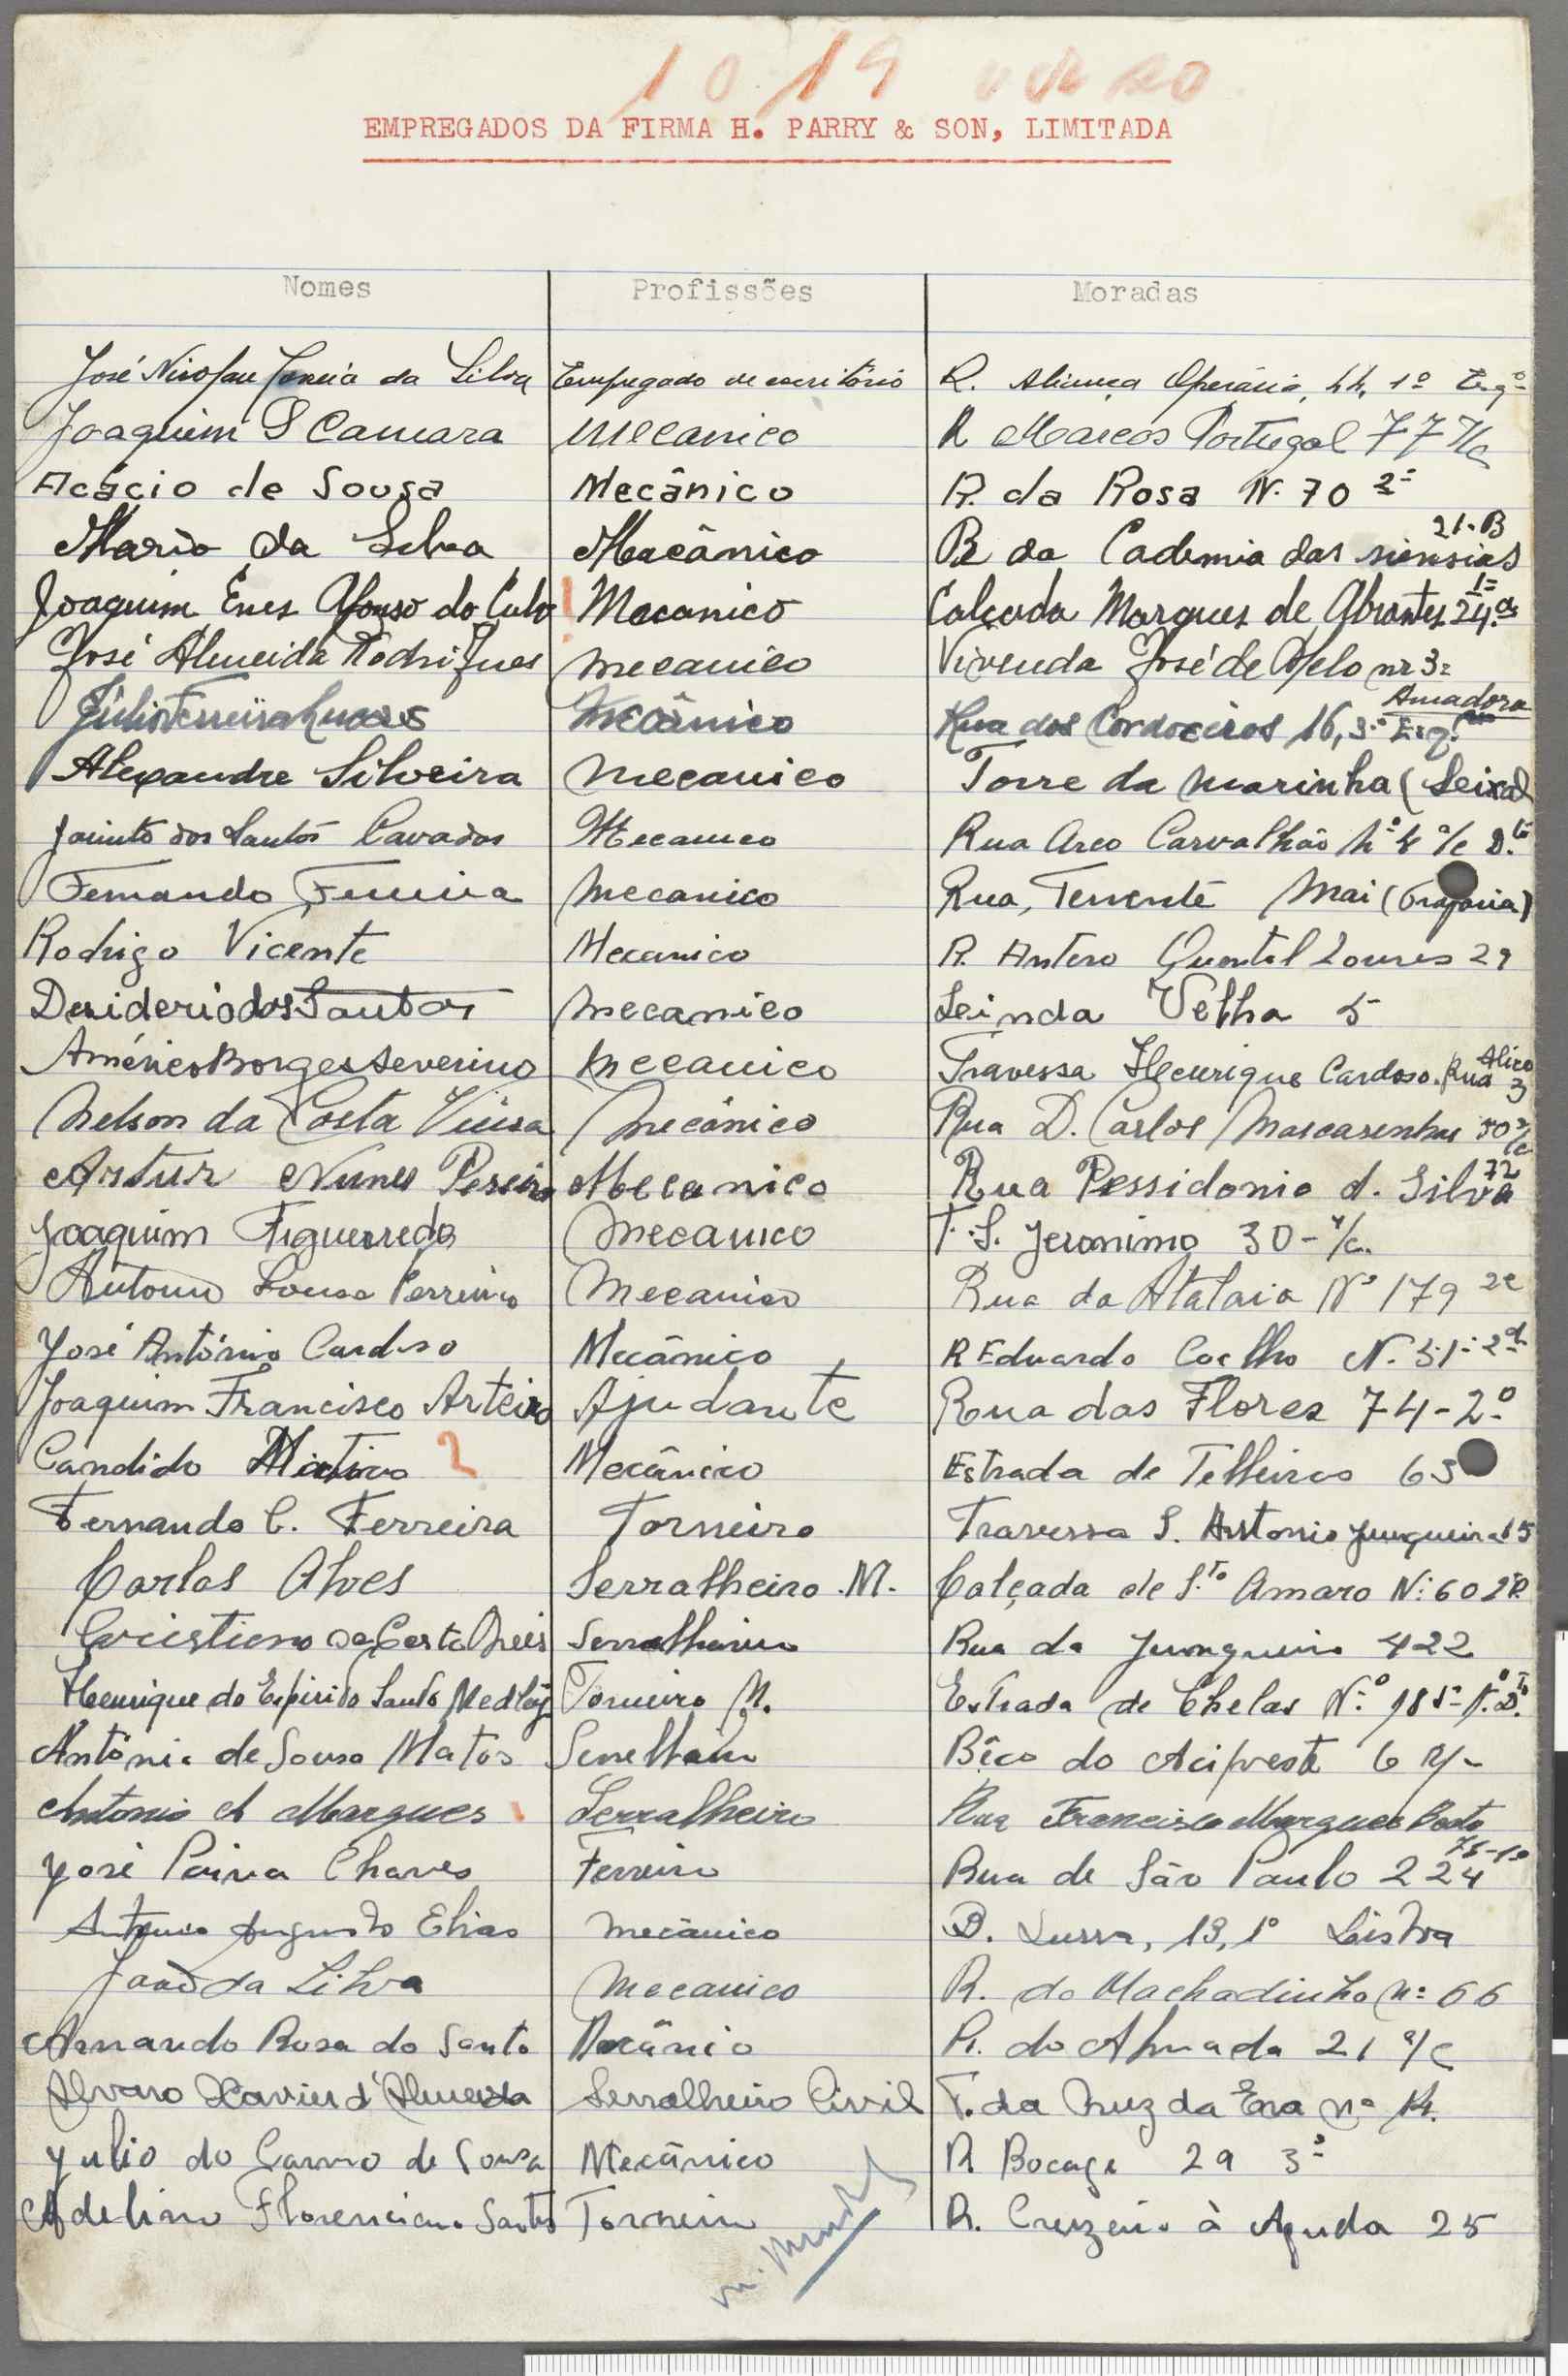 10 19
EMPREGADOS DA FIRMA H. PARRY & SON, LIMITADA
Nomes Profissões Moradas
José da Silva Empregado de escritório R. Aliança Operária, 44, 1º Esqº
Joaquim S Camara Mecanico R Marcos Portugal 77 r/c
Acácio de Sousa Mecânico R. da Rosa N. 70 2º
Mario da Silva Macânico R da Cademia das siensias 21-B
Joaquim Enes Afonso do Mecanico Calçada Marques de Abrantes 24 1º
José Almeida Rodrigues mecanico Vivenda José de Melo nr 3 Amadora
Júlio Ferreira Lucas Mecânico Rua dos Cordoeiros 16, 3º Esq.
Alexandre Silveira Mecanico Torre da Marinha (Seixal
Jacinto dos Santos Cavadas Mecanico Rua Arco Carvalhão Nº 4 r/c D.to
Fernando Ferreira Mecanico Rua, Tenente Mai (Trafaria)
Rodrigo Vicente Mecanico R. Antero Quental Loures 29
Desiderio dos Santos Mecanico Leinda Velha 5
Américo Borges Severino Mecanico Travessa Henrique Cardoso. Rua 3
Nelson da Costa Mecânico Rua D. Carlos Mascarenhas 50 r/c
Artur Nunes Mecanico Rua Pessidonio d. Silva 72
Joaquim Figuerredo Mecanico T. S. Jeronimo 30 - r/c.
Antonio Sousa Ferreira Mecanico Rua da Atalaia Nº 179
José António Cardoso Mecânico R Eduardo Coelho N. 31-2º
Joaquim Francisco Arteiro Ajudante Rua das Flores 74-2º
Candido 2 Mecânico Estrada de Telheiros 63
Fernando C. Ferreira Torneiro Travessa S. Antonio Junqueira 15
Carlos Alves Serralheiro .M. Calçada de S.to Amaro Nº 60
Cristiano da Costa Serralheiro Rua da Junqueira 422
Henrique do Espirito Santo Torneiro M. Estrada de Chelas N.º 185-1.º D.to
António de Sousa Matos Serralheiro Bêco do Acipreste 6
Antonio A Marques Serralheiro Rua Francisco Marques 75-1º
José Paiva Chaves Ferreiro Rua de São Paulo 224
Antonio Augusto Elias Mecânico 13, 1º Lisboa
João da Silva Mecanico R. do Machadinho nº 66
Armando Rosa do Santo Mecânico R. do Almada 21 r/c
Alvaro Xavier d'Almeida Serralheiro Civil T. da Cruz da Era nº 14.
Julio do Carmo de Sousa Mecânico R. Bocage 29 3º
Adelino Florenciano Santos Torneiro R. Cruzeiro à Ajuda 25